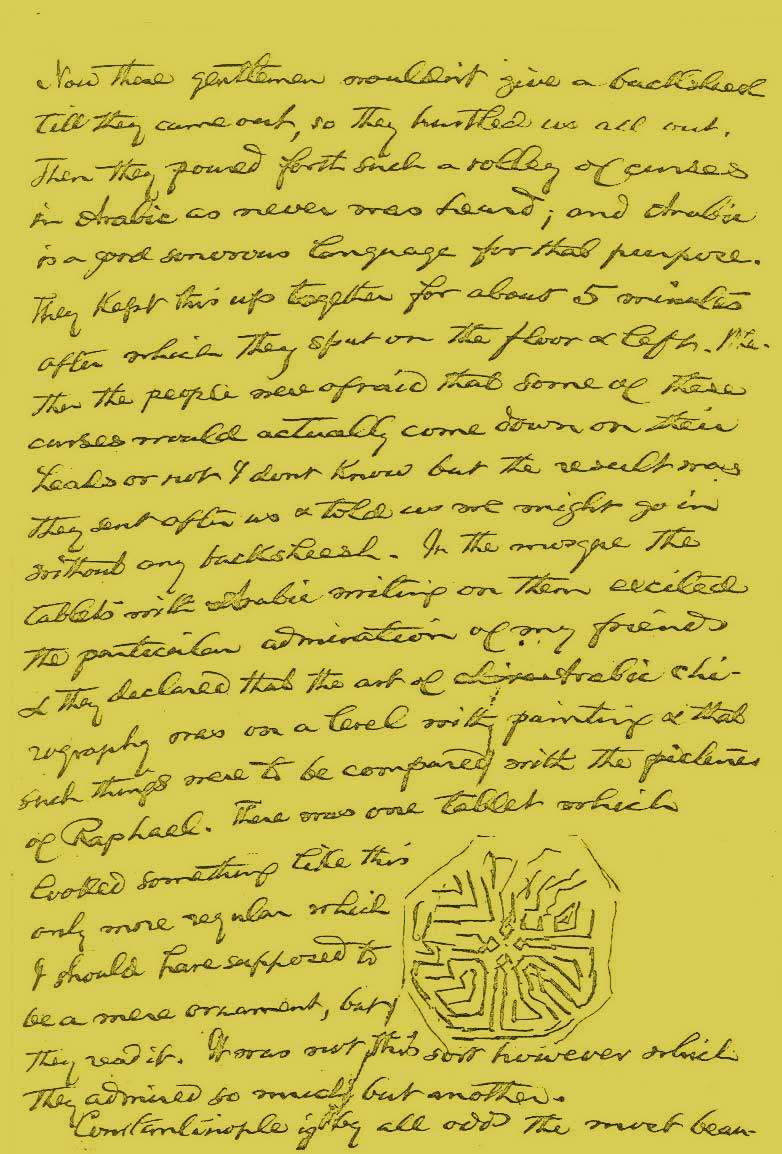 Now these gentlemen wouldn't give a backsheesh
till they came out, so they hustled us all out.
Then they poured forth such a volley of curses
in Arabic as never was heard; and Arabic
is a good sonorous language for that purpose.
They kept this up together for about 5 minutes
after which they spat on the floor & left. Whe-
ther the people were afraid that some of these
curses would actually come down on their
heads or not I dont know but the result was
they sent after us & told us we might go in
without any backsheesh. In the mosque the
tablets with Arabic writing on them excited
the particular admiration of my friends
& they declared that the art of Arabic chi-
rography was on a level with painting & that
such things were to be compared with the pictures
of Raphael. There was one tablet which
looked something like this
only more regular which
I should have supposed to
be a mere ornament, but
they read it. It was not this sort however which
they admired so much but another.
Constantinople is by all odds the most beau-